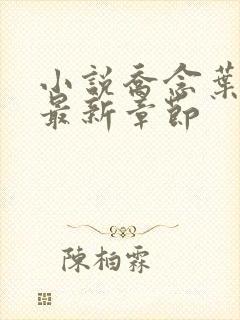 小說喬念葉
最新章節
陳柏霖